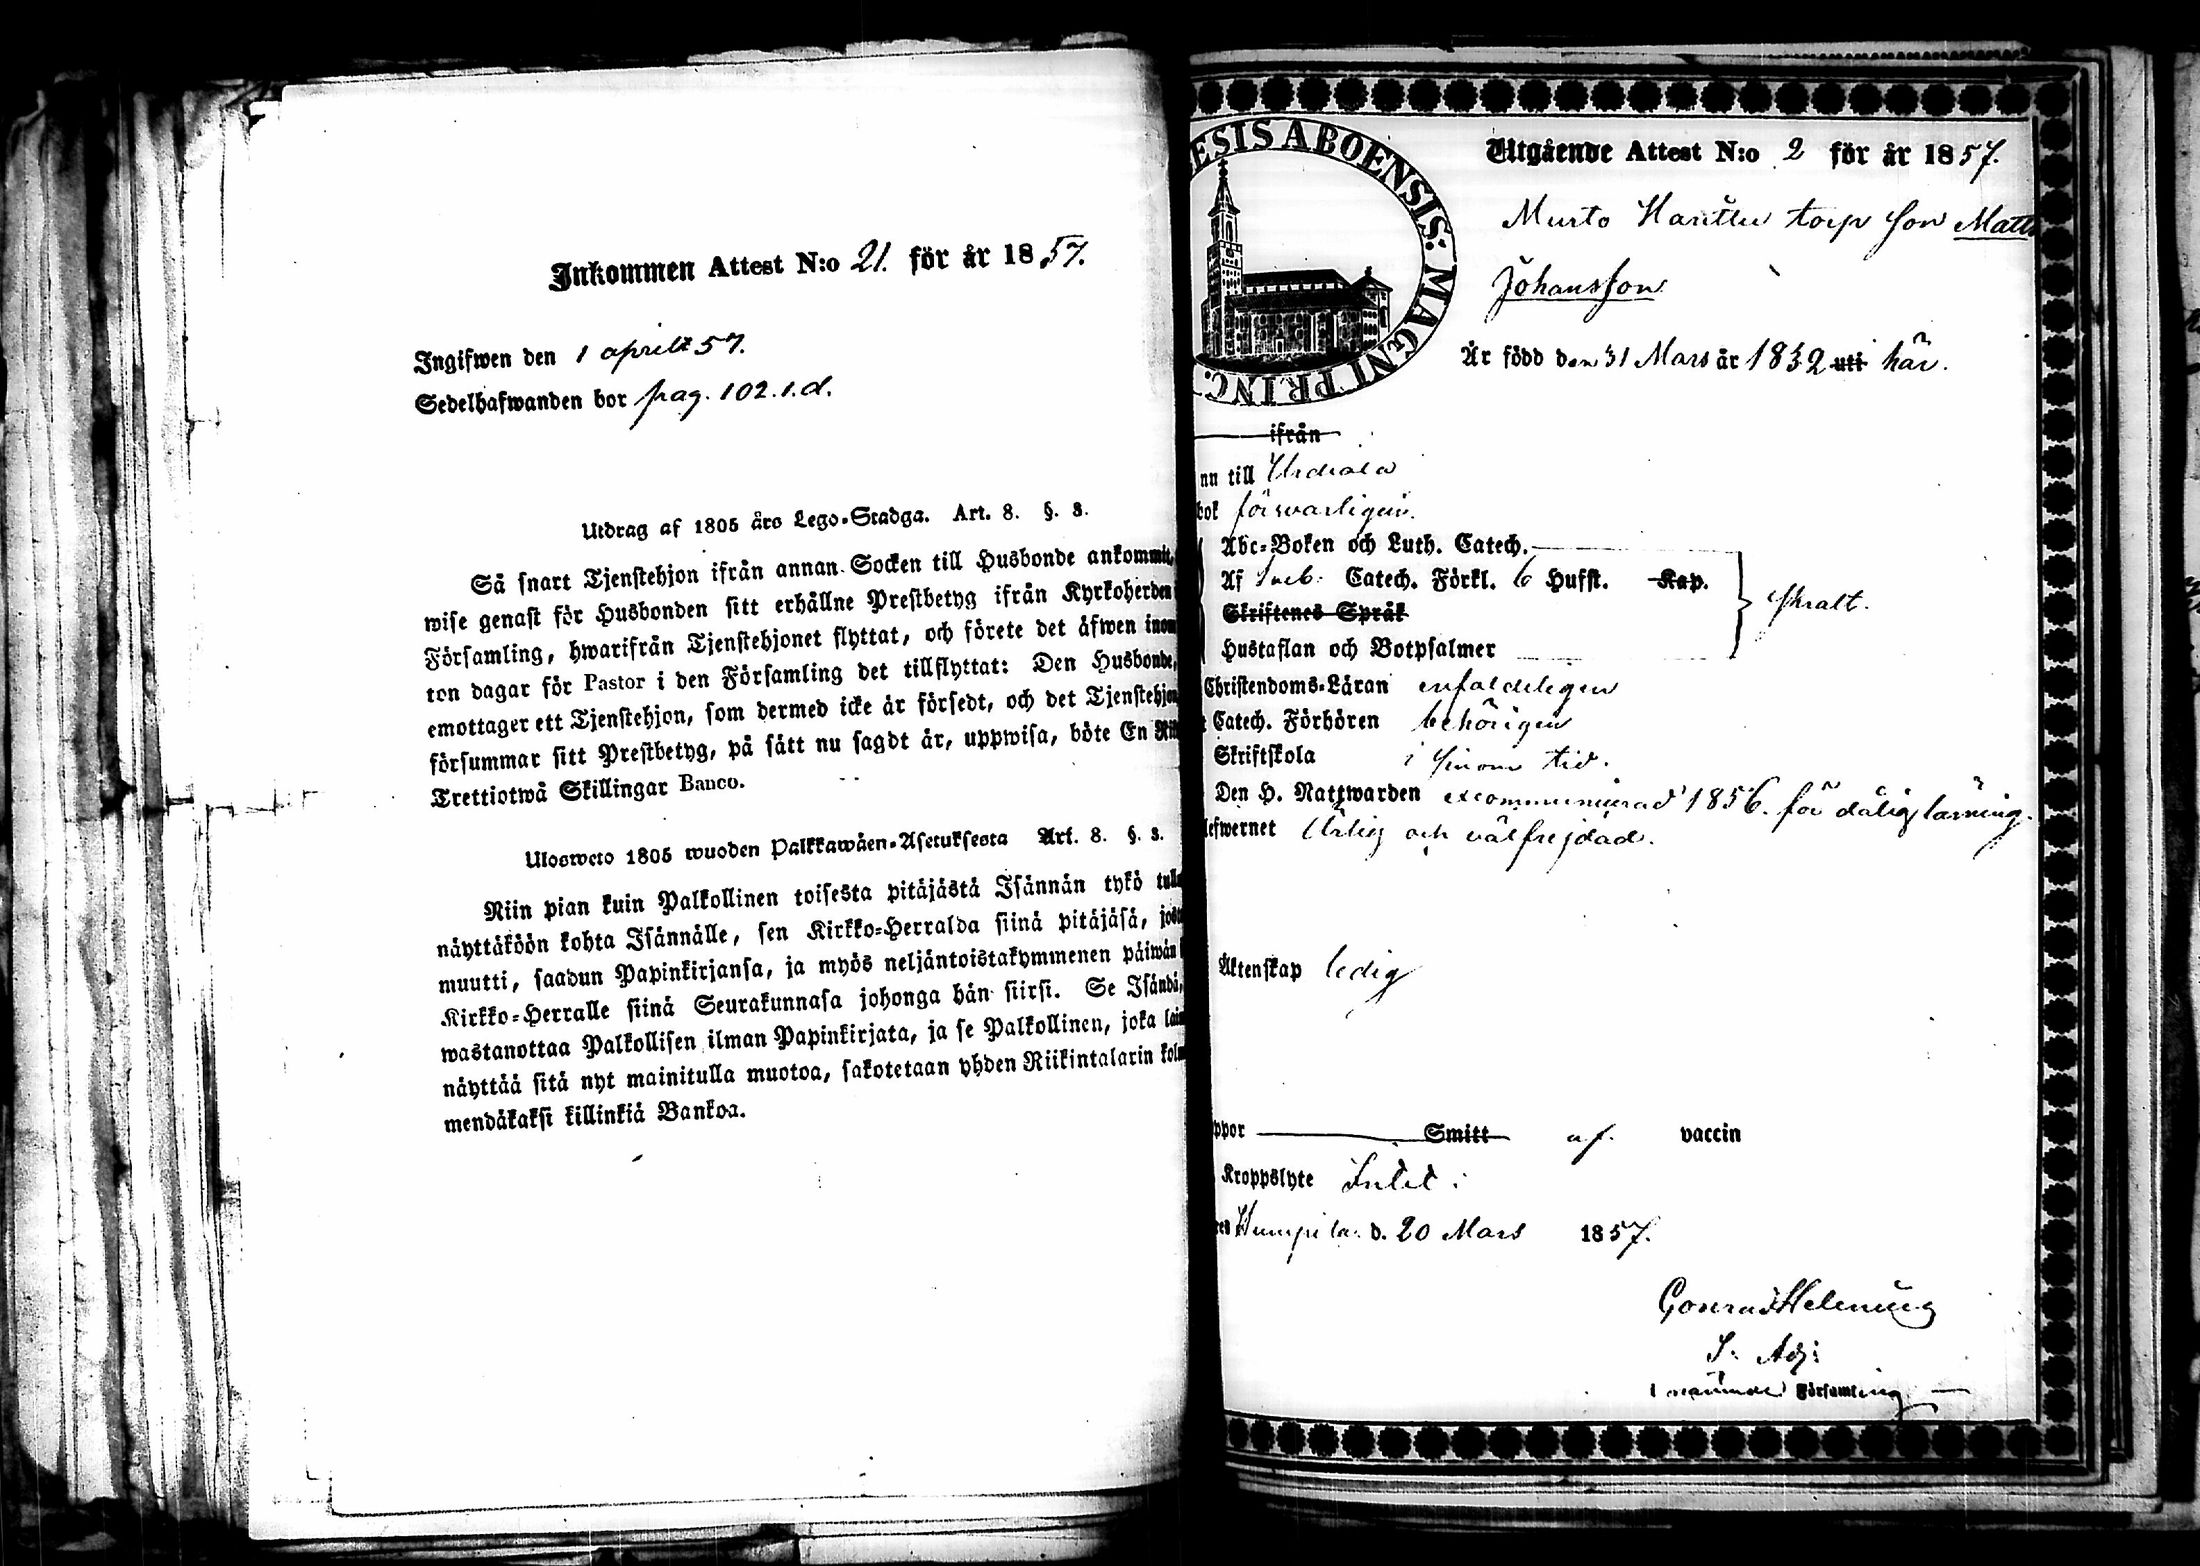 Inkommen Attest N:o 21. för år 1857.
Ingifwen den 1 april 57.
Sedelhafwanden bor pag. 102.1.d.
Utdrag af 1805 års Lego-Stadga. Art. 8. §. 3.
Så snart Tjenstehjon ifrån annan Socken till Husbonde ankommit,
wise genast för Husbonden sitt erhållne Prestbetyg ifrån Kyrkoherden
Församling, hwarifrån Tjenstehjonet flyttat, och förete det äfwen inom
ton dagar för Pastor i den Församling det tillflyttat: Den Husbonde,
emottager ett Tjenstehjon, som dermed icke är försedt, och det Tjenstehjon
försummar sitt Prestbetyg, på sätt nu sagdt är, uppwisa, böte En Rik
Trettiotwå Skillingar Banco.
Ulosweto 1805 wuoden Palkkawäen-Asetuksesta Art. 8. §. 3.
Niin pian kuin Palkollinen toisesta pitäjästä Isännän tykö tulle
näyttäköön kohta Isännälle, sen Kirkko-Herralda siinä pitäjäsä, josta
muutti, saadun Papinkirjansa, ja myös neljäntoistakymmenen päiwän
Kirkko-Herralle siinä Seurakunnasa johonga hän siirsi. Se Isändä,
wastanottaa Palkollisen ilman Papinkirjata, ja se Palkollinen, joka lai
näyttää sitä nyt mainitulla muotoa, sakotetaan yhden Riikintalarin kolm
mendäkaksi killinkiä Bankoa.
ESIS ABOENSIS: MAGNI PRINC.
Utgående Attest N:o 2 för år 1857.
Murto torp son Matts
Johansson
Är född den 31 Mars år 1832 uti här.
ifrån
nu till Urdiala
bok förswarligen.
Abc-Boken och Luth. Catech.
Af Sveb. Catech. Förkl. 6 Hufst. Kap.
Skriftenes Språk
Hustaflan och Botpsalmer
skralt.
Christendoms-Läran enfaldeligen
Catech. Förhören behörigen
Skriftskola i sinom tid.
Den H. Nattwarden excommunicerad 1856. för dålig läsning.
lefwernet ärlig och välfrejdad.
Äktenskap ledig
ppor Smitt af vaccin
Kroppslyte Intet
res Humpila d. 20 Mars 1857.
S. Adj:
i nämnde Församling